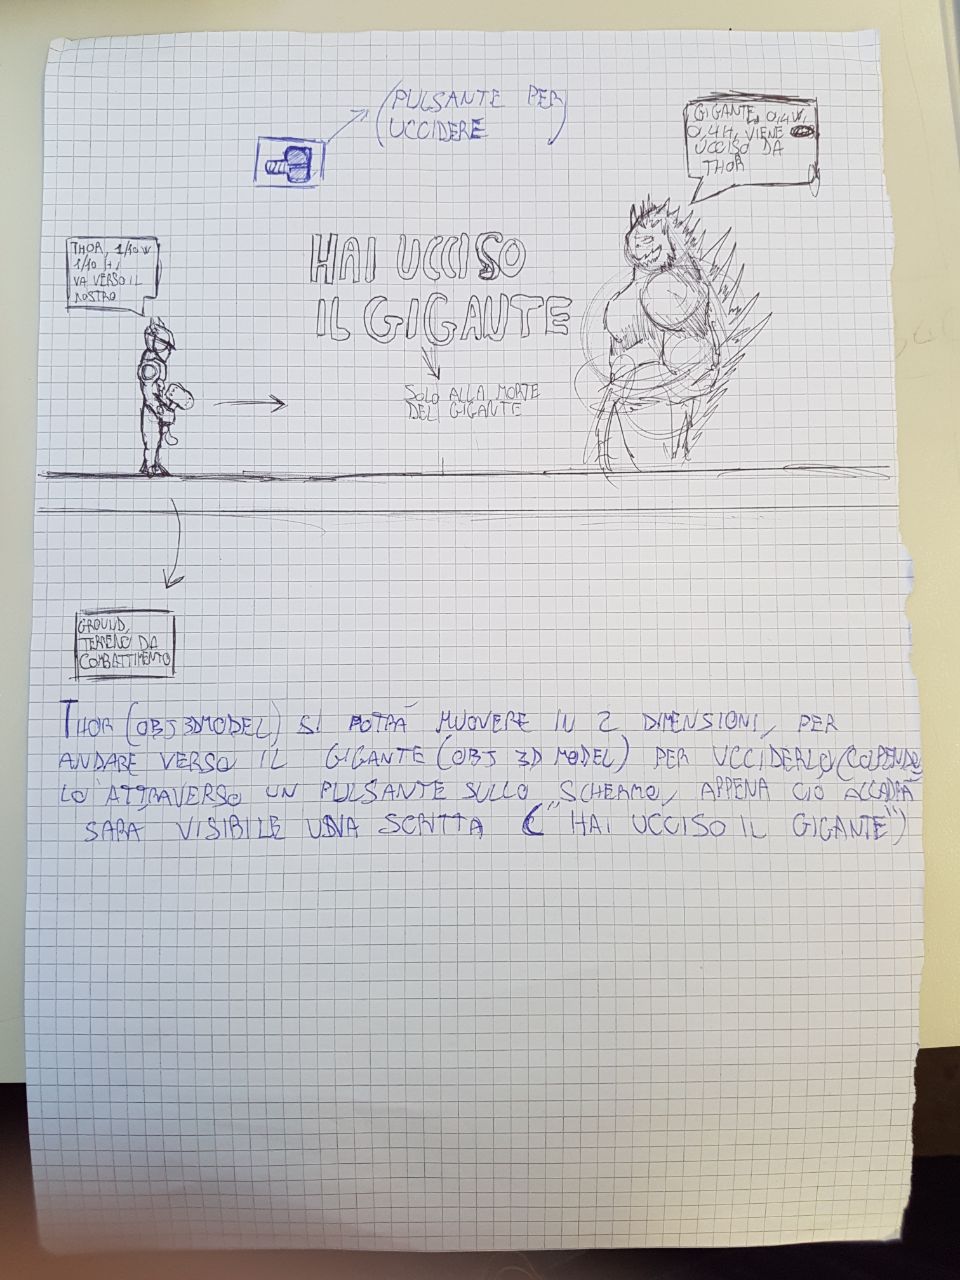 (PULSANTE PER
UCCIDERE)
GIGANTE, 0,4W,
0,4H, VIENE
UCCISO DA
THOR
THOR, 1/10 W
1/10 H,
VA VERSO IL
MOSTRO
HAI UCCISO
IL GIGANTE
SOLO ALLA MORTE
DEL GIGANTE
GROUND,
TERRENO DA
COMBATTIMENTO
THOR (OBJ 3DMODEL) SI POTRÀ MUOVERE IN 2 DIMENSIONI, PER
ANDARE VERSO IL GIGANTE (OBJ 3D MODEL) PER UCCIDERLO, (COLPENDO
LO ATTRAVERSO UN PULSANTE SULLO SCHERMO, APPENA CIÒ ACCADRÀ
SARÀ VISIBILE UNA SCRITTA ("HAI UCCISO IL GIGANTE")